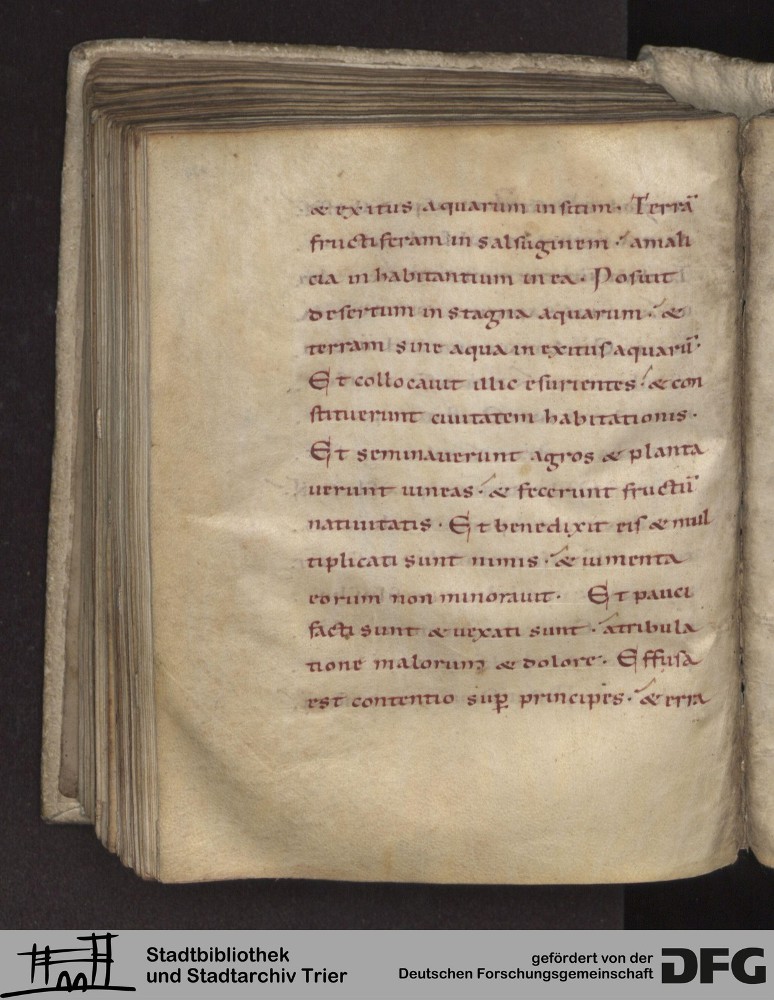 & exitus aquarum insitim. Terrā
fructiferam in salsuginem. amali
cia inhabitantium in ea. Posuit
desertum in stagna aquarum. &
terram sine aqua in exitus aquarū.
Et collocauit illic esurientes. & con
stituerunt ciuitatem habitationis.
Et seminauerunt agros & planta
uerunt uineas. & fecerunt fructū
natiuitatis. Et benedixit eis & mul
tiplicati sunt nimis. & iumenta
eorum non minorauit. Et pauci
facti sunt & uexati sunt. atribula
tione malorum & dolore. Effusa
est contentio suꝑ principes. & erra
Stadtbibliothek
und Stadtarchiv Trier
gefördert von der
Deutschen Forschungsgemeinschaft
DFG